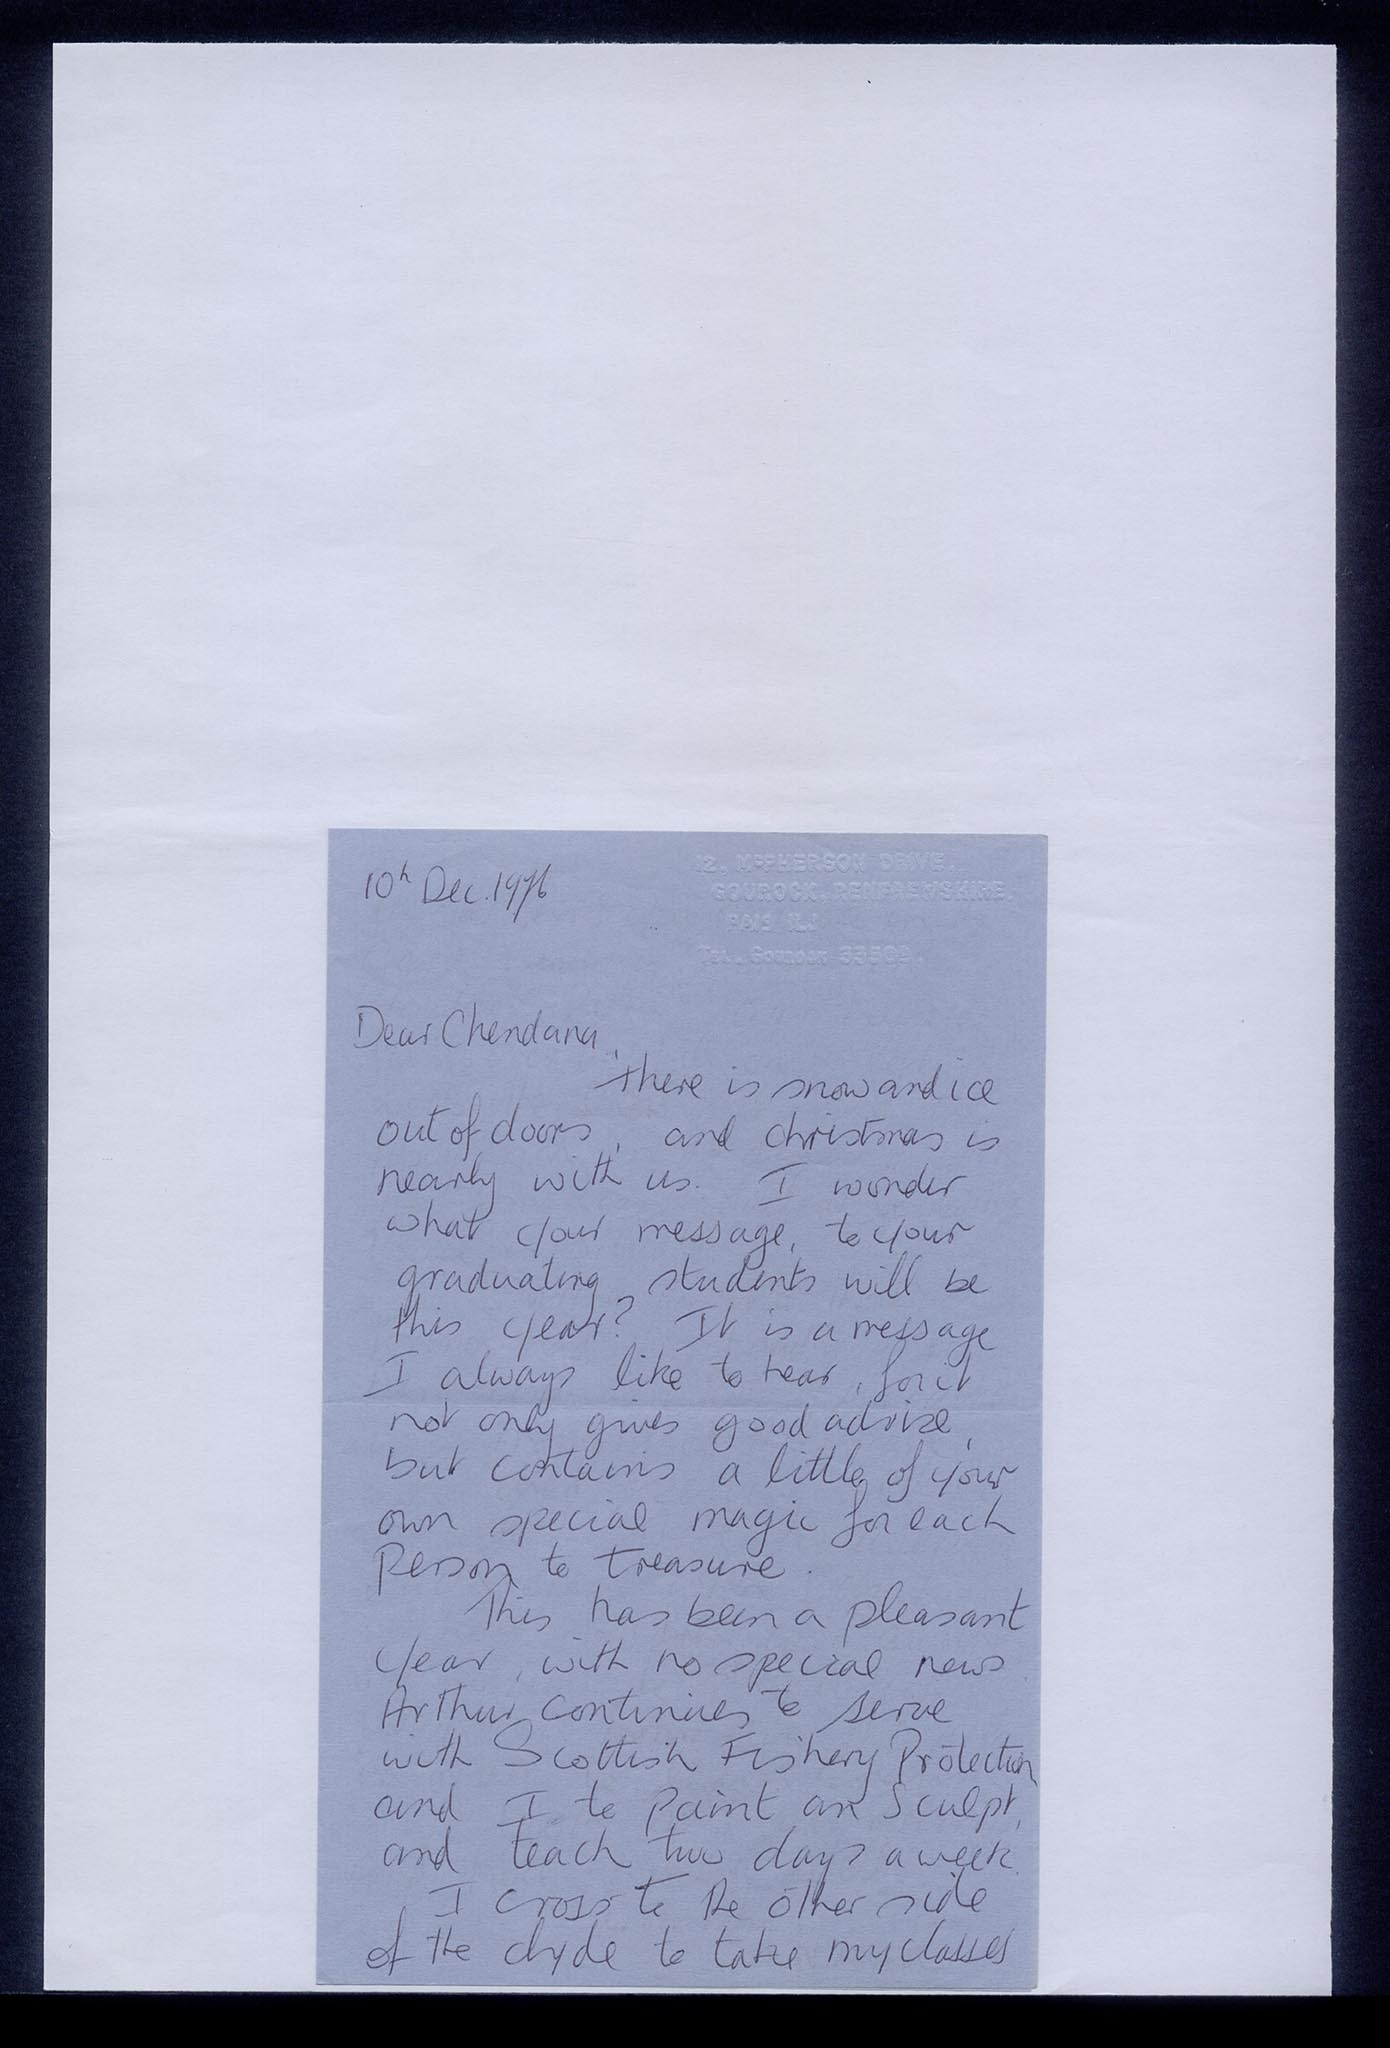 10th Dec. 1976
12. McPHERSON DRIVE.
GOUROCK. RENFREWSHIRE.
PA19 1LJ
TEL. GOUROCK 33502.
Dear Chendana,
There is snow and ice
out of doors, and christmas is
nearly with us. I wonder
what your message, to your
graduating students will be
this year? It is a message
I always like to hear, for it
not only gives good advise,
but contains a little of your
own special magic for each
person to treasure.
This has been a pleasant
year, with no special news.
Arthur continues to serve
with Scottish Fishery Protection
and I to paint an sculpt,
and teach two days a week.
I cross to the other side
of the clyde to take my classes